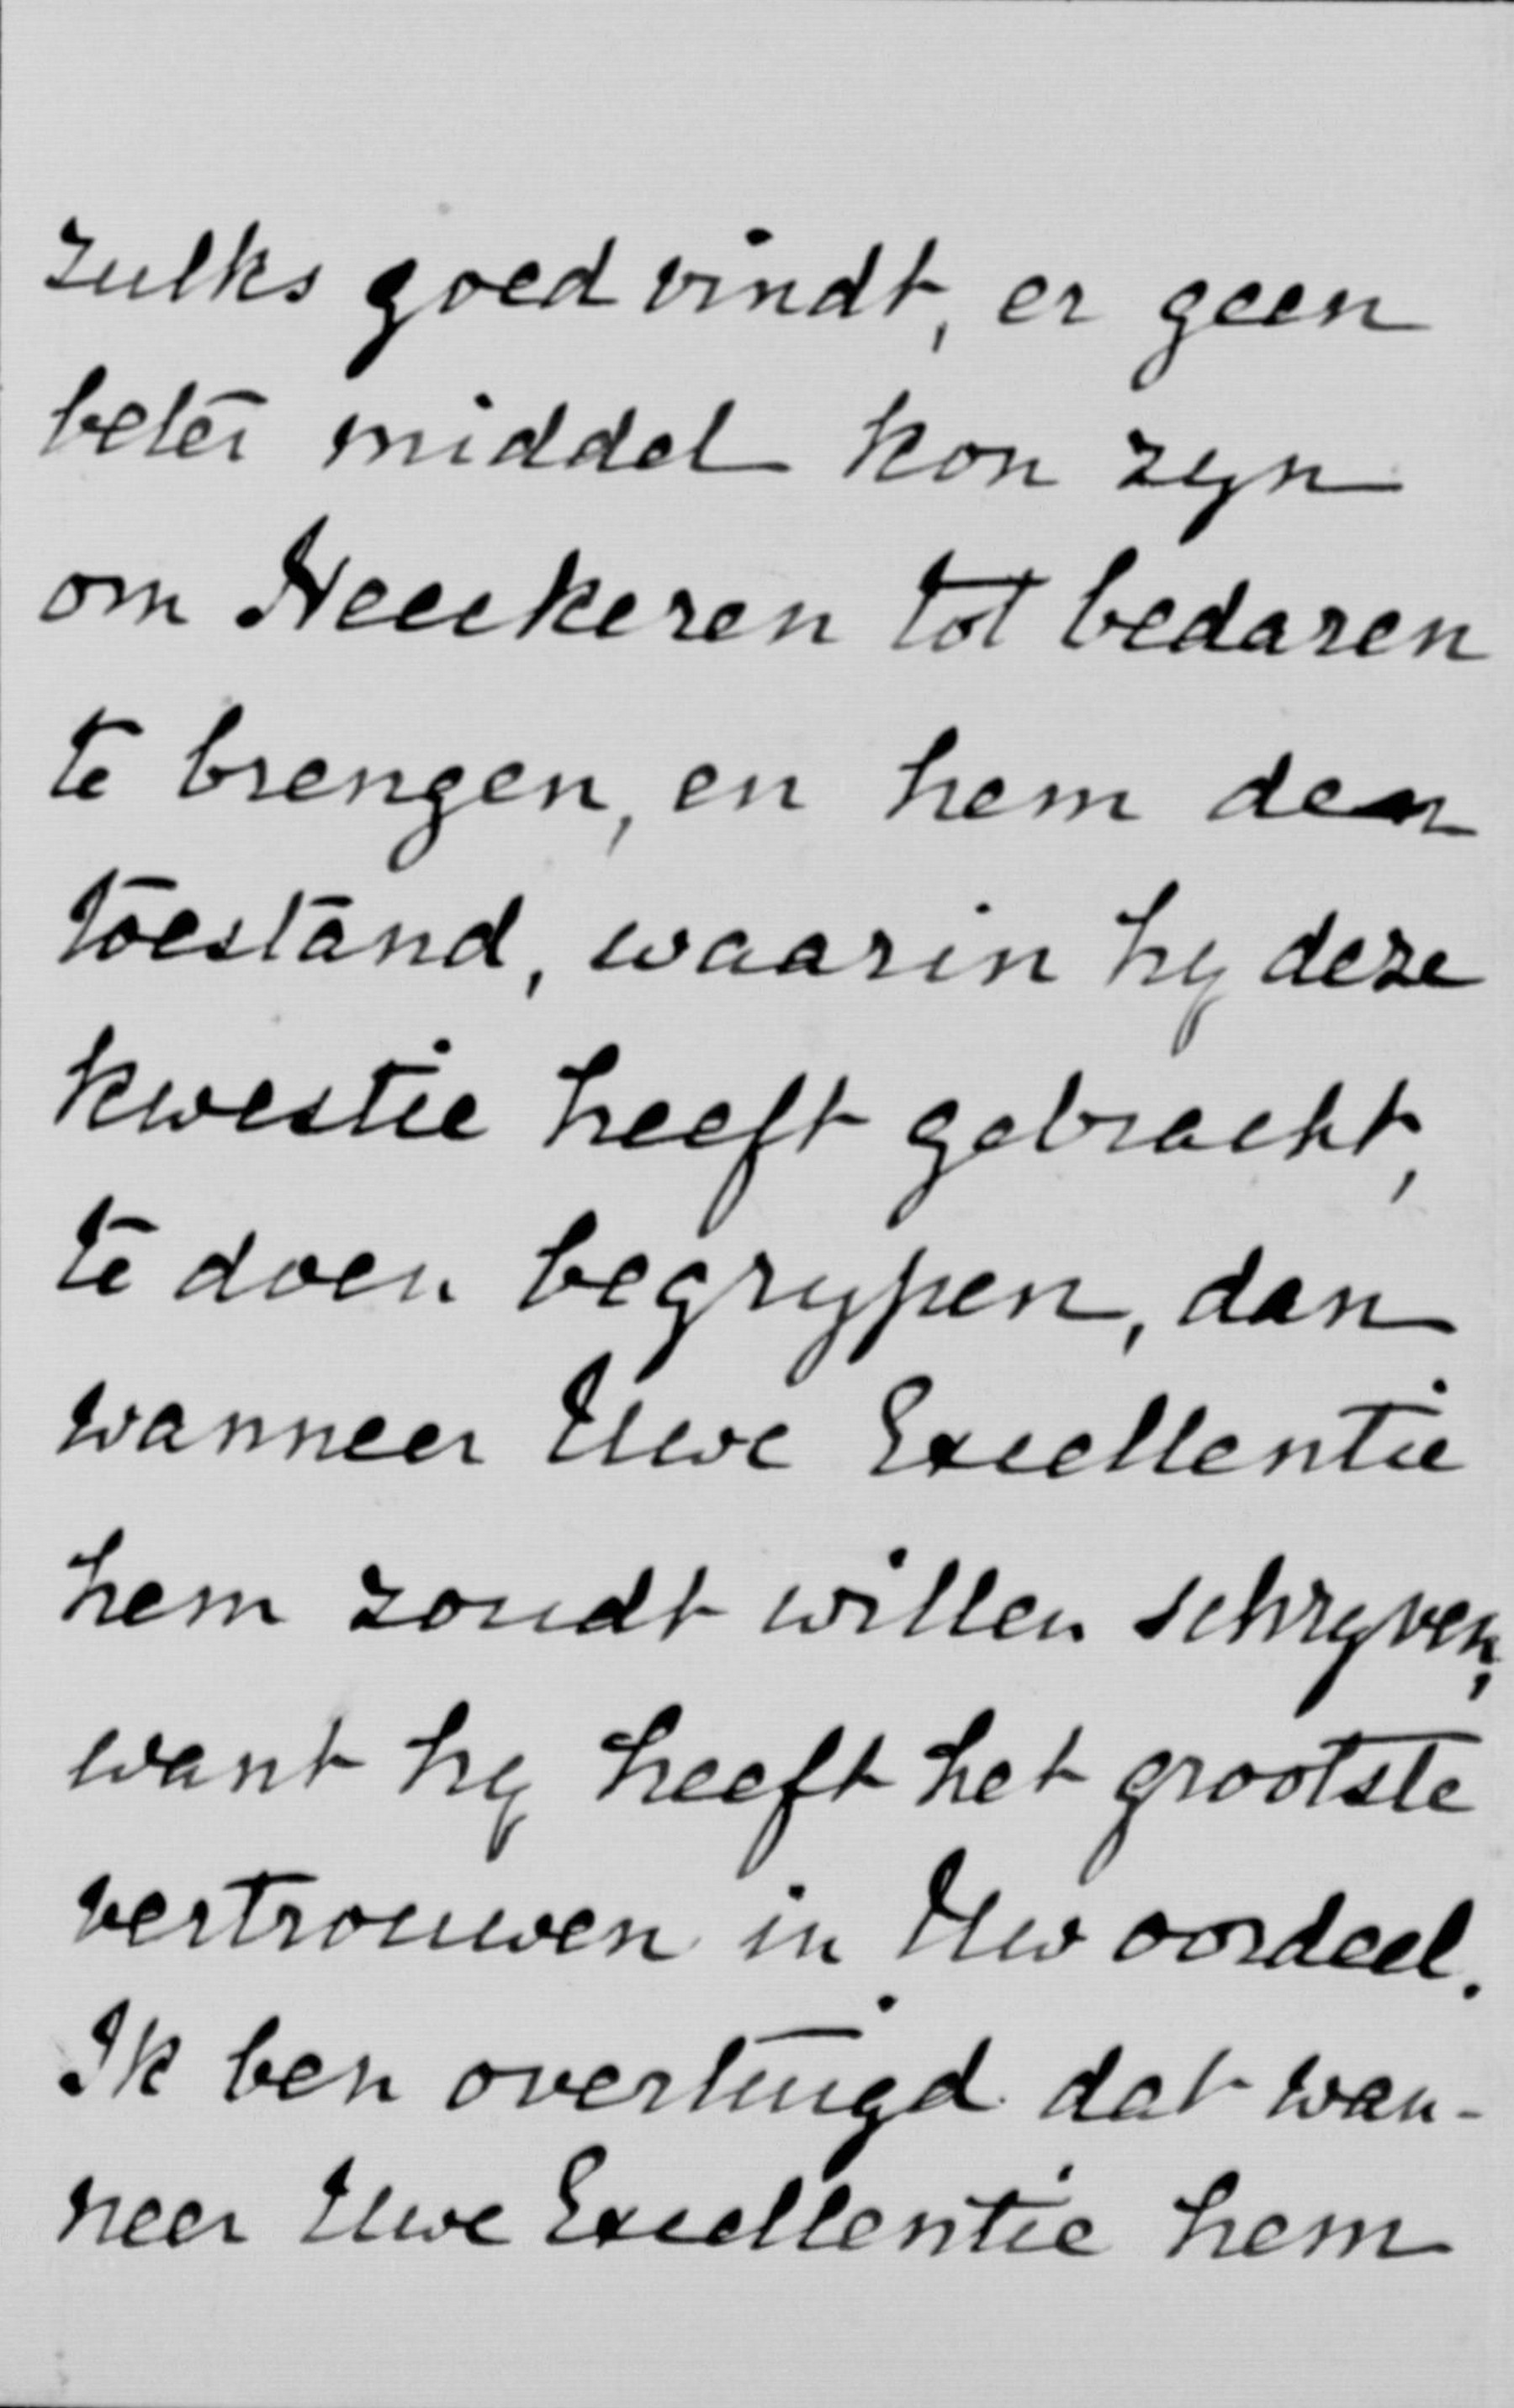 zulks goed vindt, er geen
beter middel kon zyn
om Heeckeren tot bedaren
te brengen, en hem den
toestand, waarin hy deze
kwestie heeft gebracht,
te doen begrypen, dan
wanneer Uwe Excellentie
hem zoudt willen schryven,
want hy heeft het grootste
vertrouwen in Uw oordeel.
Ik ben overtuigd dat wan-
neer Uwe Excellentie hem